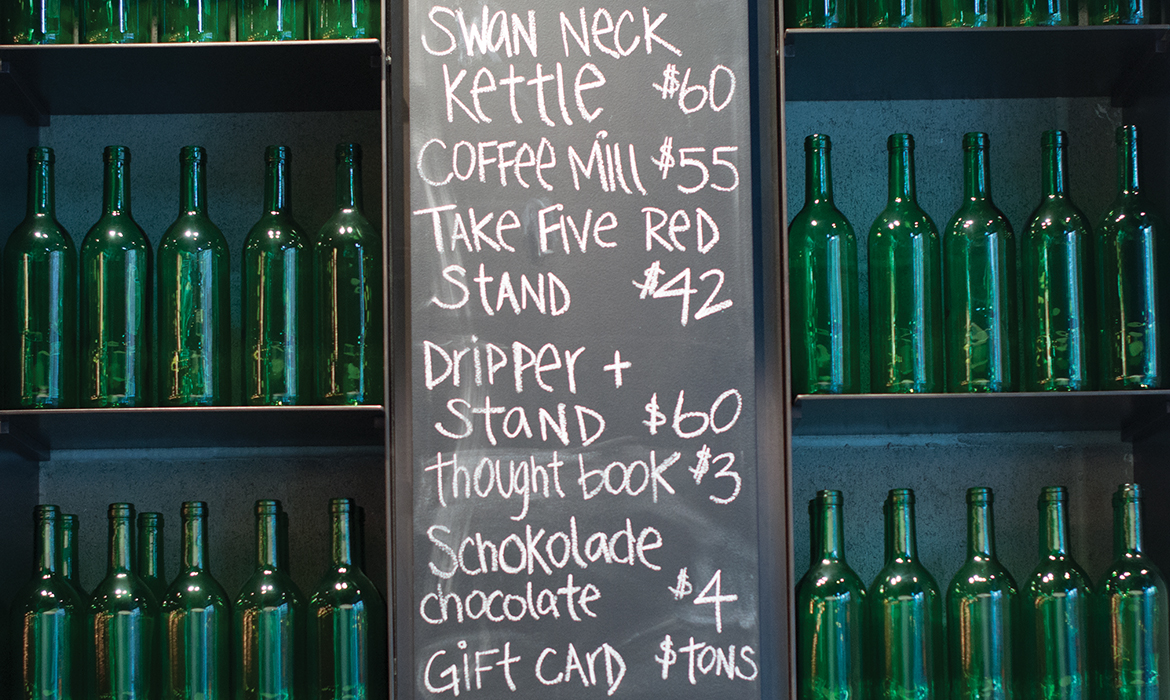 SWAN NECK
KETTLE $60
COFFEE MILL $55
TAKE FIVE RED
STAND $42
DRIPPER +
STAND $60
thought book $3
Schokolade
chocolate $4
GIFT CARD $TONS